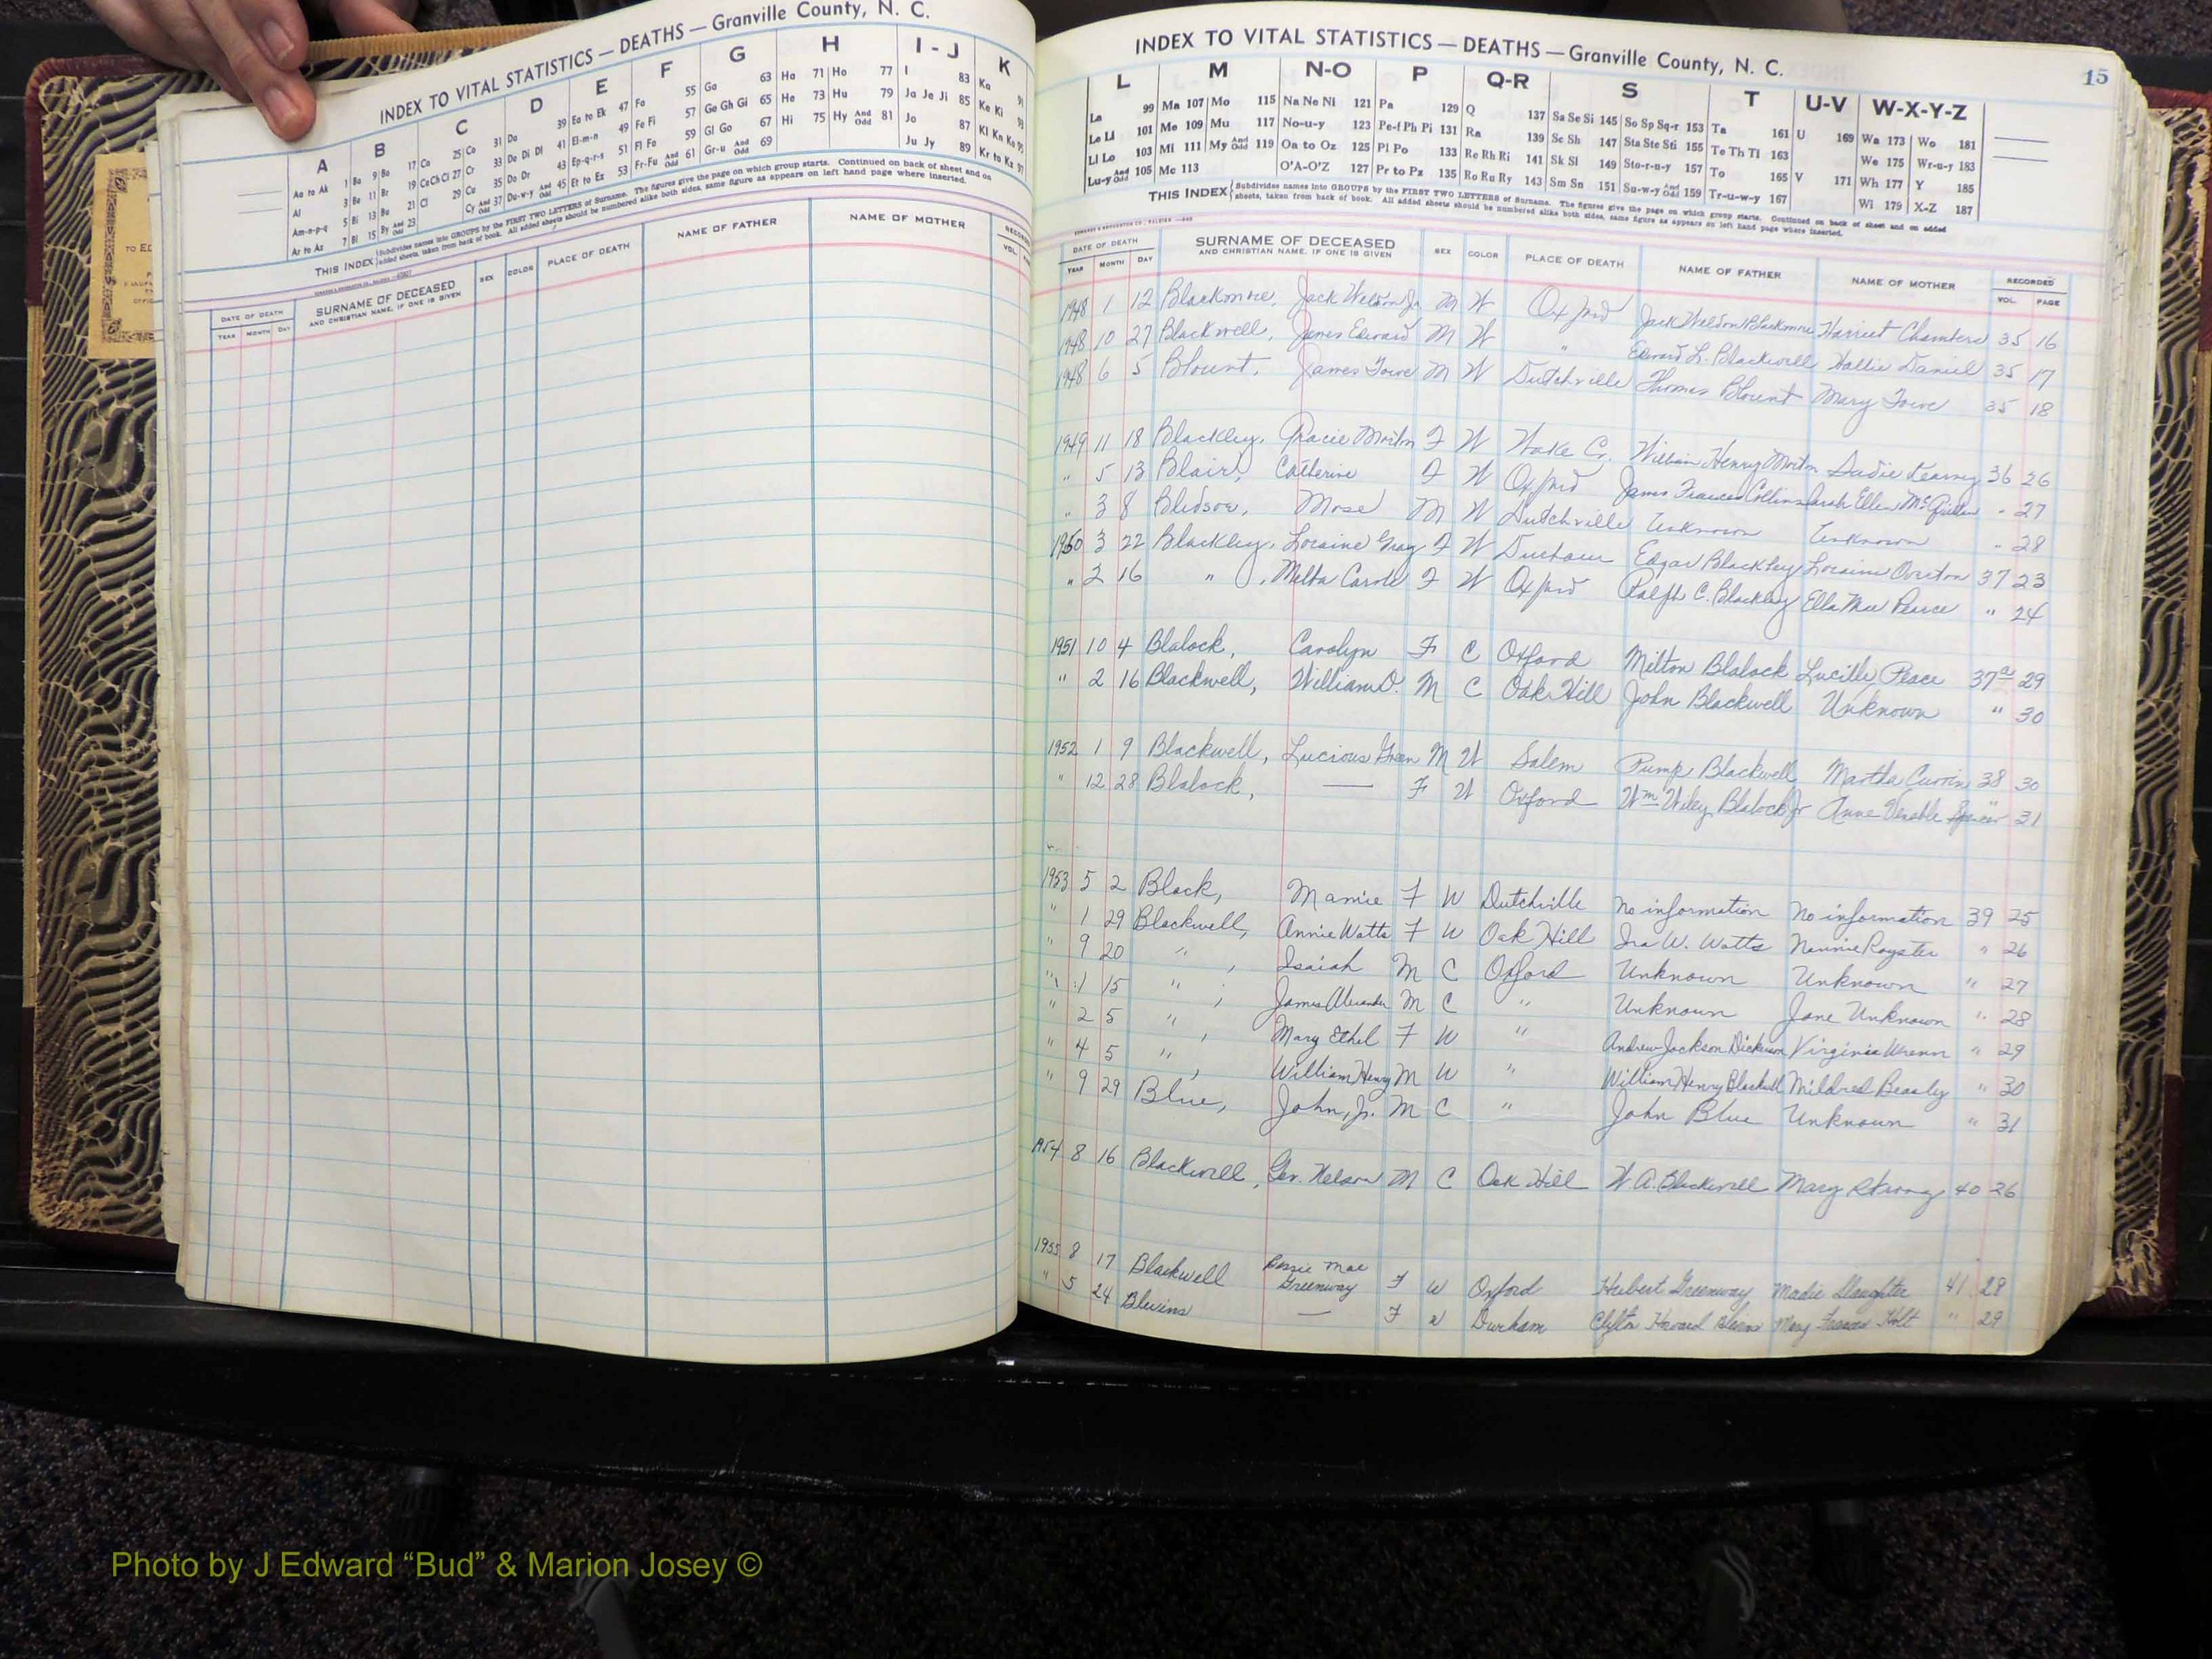 INDEX TO VITAL STATISTICS — DEATHS — Granville County, N. C.
A B C D E F G H I - J K
Aa to Ak 1 Ba 9 Bo 17 Ca 25 Co 31 Da 39 Ea to Ek 47 Fa 55 Ga 63 Ha 71 Ho 77 I 83 Ka 91
Al 3 Be 11 Br 19 Ce Ch Ci 27 Cr 33 De Di Dl 41 El-m-n 49 Fe Fi 57 Ge Gh Gi 65 He 73 Hu 79 Ja Je Ji 85 Ke Ki 93
Am-n-p-q 5 Bi 13 Bu 21 Cl 29 Cu 35 Do Dr 43 Ep-q-r-s 51 Fl Fo 59 Gl Go 67 Hi 75 Hy And Odd 81 Jo 87 Kl Kn Ko 95
Ar to Az 7 Bl 15 By And Odd 23 Cy And Odd 37 Du-w-y And Odd 45 Et to Ez 53 Fr-Fu And Odd 61 Gr-u And Odd 69 Ju Jy 89 Kr to Kz 97
THIS INDEX Subdivides names into GROUPS by the FIRST TWO LETTERS of Surname. The figures give the page on which group starts. Continued on back of sheet and on
added sheets, taken from back of book. All added sheets should be numbered alike both sides, same figure as appears on left hand page where inserted.
DATE OF DEATH SURNAME OF DECEASED SEX COLOR PLACE OF DEATH NAME OF FATHER NAME OF MOTHER
YEAR MONTH DAY AND CHRISTIAN NAME, IF ONE IS GIVEN VOL.
INDEX TO VITAL STATISTICS — DEATHS — Granville County, N. C.
15
L M N-O P Q-R S T U-V W-X-Y-Z
La 99 Ma 107 Mo 115 Na Ne Ni 121 Pa 129 Q 137 Sa Se Si 145 So Sp Sq-r 153 Ta 161 U 169 Wa 173 Wo 181
Le Ll 101 Me 109 Mu 117 No-u-y 123 Pe-f Ph Pi 131 Ra 139 Sc Sh 147 Sta Ste Sti 155 Te Th Ti 163 We 175 Wr-u-y 183
Li Lo 103 Mi 111 My And Odd 119 Oa to Oz 125 Pl Po 133 Re Rh Ri 141 Sk Sl 149 Sto-r-u-y 157 To 165 V 171 Wh 177 Y 185
Lu-y And Odd 105 Mc 113 O'A-O'Z 127 Pr to Pz 135 Ro Ru Ry 143 Sm Sn 151 Su-w-y And Odd 159 Tr-u-w-y 167 Wi 179 X-Z 187
THIS INDEX Subdivides names into GROUPS by the FIRST TWO LETTERS of Surname. The figures give the page on which group starts. Continued on back of sheet and on added
sheets, taken from back of book. All added sheets should be numbered alike both sides, same figure as appears on left hand page where inserted.
DATE OF DEATH SURNAME OF DECEASED SEX COLOR PLACE OF DEATH NAME OF FATHER NAME OF MOTHER RECORDED
YEAR MONTH DAY AND CHRISTIAN NAME, IF ONE IS GIVEN VOL. PAGE
1948 1 12 Blackmore, Jack Weldon Jr. M W Oxford Jack Weldon Blackmore Harriet Chambers 35 16
1948 10 27 Blackwell, James Edward M W " Edward L. Blackwell Hallie Daniel 35 17
1948 6 5 Blount, James Towe M W Dutchville Thomas Blount Mary Towe 35 18
1949 11 18 Blackley, Gracie Morton F W Wake Co. William Henry Morton Sadie Kearney 36 26
" 5 13 Blair, Catherine F W Oxford James Frances Collins Sarah Ellen " 27
" 3 8 Bledsoe, Mose M W Dutchville Unknown Unknown " 28
1950 3 22 Blackley, Loraine Gray F W Durham Edgar Blackley Loraine Overton 37 23
" 2 16 " , Melba Carole F W Oxford Ralph C. Blackley Ella Mae Pearce " 24
1951 10 4 Blalock, Carolyn F C Oxford Milton Blalock Lucille Peace 37a 29
" 2 16 Blackwell, William O. M C Oak Hill John Blackwell Unknown " 30
1952 1 9 Blackwell, Lucious Green M W Salem Pump Blackwell Martha Currin 38 30
" 12 28 Blalock, — F W Oxford Wm Wiley Blalock Jr Anne Venable Spencer " 31
1953 5 2 Black, Mamie F W Dutchville No information No information 39 25
" 1 29 Blackwell, Annie Watts F W Oak Hill Ira W. Watts Nannie Royster " 26
" 9 20 " , Isaiah M C Oxford Unknown Unknown " 27
" 1 15 " , James Alexander M C " Unknown Jane Unknown " 28
" 2 5 " , Mary Ethel F W " Andrew Jackson Dickerson Virginia Wrenn " 29
" 4 5 " , William Henry M W " William Henry Blackwell Mildred Beasley " 30
" 9 29 Blue, John, Jr. M C " John Blue Unknown " 31
1954 8 16 Blackwell, Geo. Nelson M C Oak Hill W. A. Blackwell Mary 40 26
1955 8 17 Blackwell Bessie Mae Greenway F W Oxford Hubert Greenway Madie Slaughter 41 28
" 5 24 Blevins — F W Durham Clifton Howard Blevins Mary Frances Holt " 29
Photo by J Edward “Bud” & Marion Josey ©